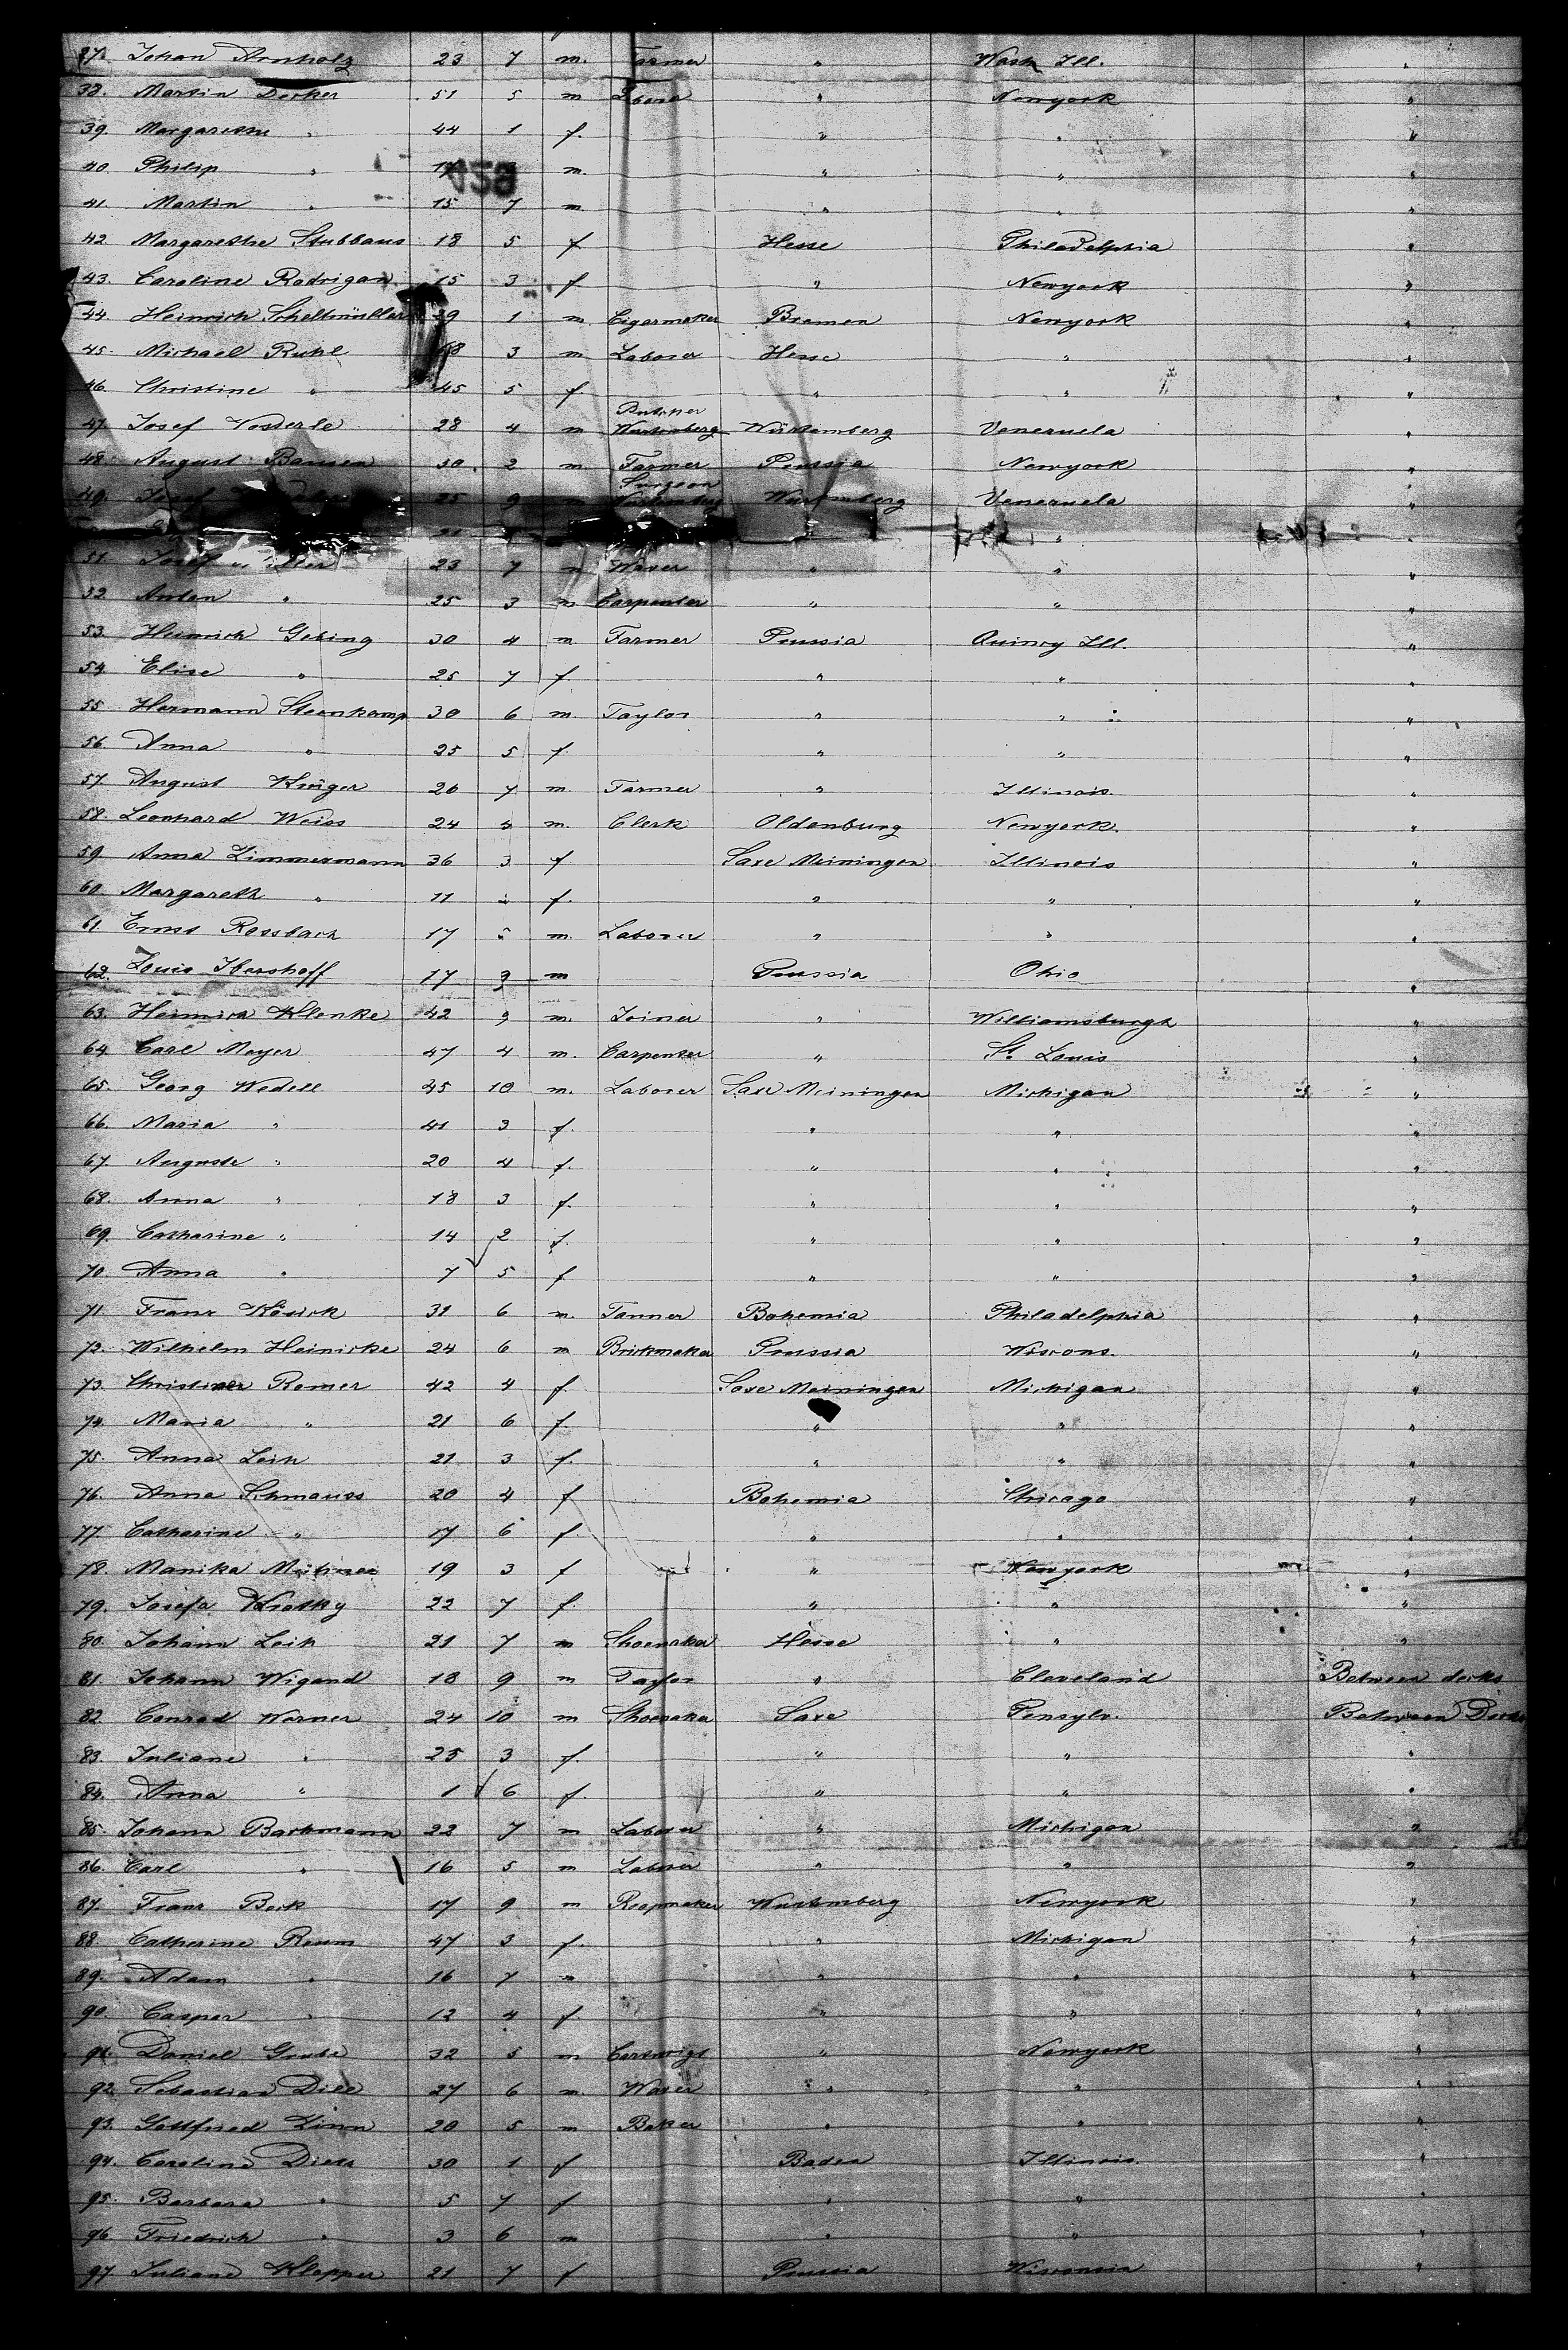 37. Johan Arnholz 23 7 m. Farmer " Wash Ill. "
38. Martin Decker 51 5 m " Newyork "
39. Margarethe " 44 1 f. " " "
40. Philip " 17 m. " " "
428
41. Martin " 15 7 m. " " "
42. Margarethe Stubbaus 18 5 f Hesse Philadelphia "
43. Caroline Rodrigan 15 3 f " Newyork "
44. Heinrich Schellmüller 1 m Cigarmaker Bremen Newyork "
45. Michael Ruhl 3 m Laborer Hesse " "
46. Christine " 45 5 f. " " "
Butcher
47. Josef 28 4 m Wurtemberg Würtemberg Venezuela "
48. August Bansen 30. 2 m. Farmer Prussia Newyork "
Surgeon
49. Josef 25 9 m Venezuela "
" "
51. Josef 23 7 m Waver " " "
52. Anton " 25 3 m Carpenter " " "
53. Heinrich Gebing 30 4 m. Farmer Prussia Quincy Ill. "
54. Elise " 25 7 f. " " "
55. Hermann Steenkamp 30 6 m. Taylor " " "
56. Anna " 25 5 f. " " "
57. August Krüger 26 7 m Farmer " Illinois. "
58. Leonhard Weiss 24 m. Clerk Oldenburg Newyork. "
59. Anna Zimmermann 36 3 f Saxe Meiningen Illinois "
60. Margareth " 11 f. " " "
61. Ernst Rossbach 17 m. Laborer " " "
62. Louis Ibershoff 17 9 m Prussia Ohio "
63. Heinrich Klenke 42 9 m. Joiner " Williamsburgh "
64. Carl Meyer 47 4 m. Carpenter " St. Louis "
65. Georg Wedell 45 10 m. Laborer Saxe Meiningen Michigan "
66. Maria " 41 3 f. " " "
67. Auguste " 20 4 f. " " "
68. Anna " 18 3 f. " " "
69. Catharine " 14 2 f. " " "
70. Anna " 7 5 f " " "
71. Franz 31 6 m. Tanner Bohemia Philadelphia "
72. Wilhelm Heinicke 24 6 m Brickmaker Prussia Wiscons. "
73. Romer 42 4 f. Saxe Meiningen Michigan "
74. Maria " 21 6 f. " " "
75. Anna Leih 21 3 f. " " "
76. Anna Schmauss 20 4 f Bohemia Chicago "
77. Catharine " 17 6 f. " " "
78. Manika 19 3 f " Newyork "
79. Josefa Kratky 22 7 f. " " "
80. Johann Leih 21 7 m Shoemaker Hesse " "
81. Johann Wigand 18 9 m Taylor " Cleveland Between decks
82. Conrad Werner 24 10 m Shoemaker Saxe Pensylv. Between Decks
83. Juliane " 25 3 f. " " "
84. Anna " 1 6 f. " " "
85. Johann Bachmann 22 7 m Laborer " Michigan "
86. Carl " 16 5 m Laborer " " "
87. Franz Beck 17 9 m Roopmaker Wurtemberg Newyork "
88. Catharine Reum 47 3 f. " Michigan "
89. Adam " 16 7 m " " "
90. Casper " 12 4 f. " " "
91. Daniel Grube 32 5 m " Newyork "
92. Sebastian Dill 27 6 m. Waver " " "
93. Gottfried Zinn 20 5 m Baker " " "
94. Caroline 30 1 f Baden Illinois. "
95. Barbara " 5 7 f " " "
96. Friedrich " 3 6 m " " "
97. Juliane Klepper 21 7 f Prussia Wisconsin "